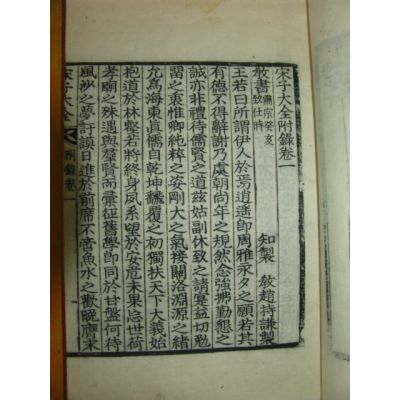 宋子大全附錄卷一
敎書 肅宗癸亥致仕時
知製 敎趙持謙製
王若曰所謂伊人於焉逍遙卽周雅永夕之願若其
有德不得辭謝乃處朝尙年之規然念強拂勤懇之
誠亦非禮待儒賢之道玆姑副休致之請寔益切勉
留之衷惟卿純粹之姿剛大之氣接關洛淵源之緖
允爲海東眞儒自乾坤飜覆之初獨扶天下大義始
抱道於林壑若將終身夙系望於安危未果忘世荷
孝廟之殊遇與羣賢而彙征舊學卽同於甘盤何待
風沙之夢訏謨日進於前席不啻魚水之歡晩膺末
宋子大全 附錄卷一